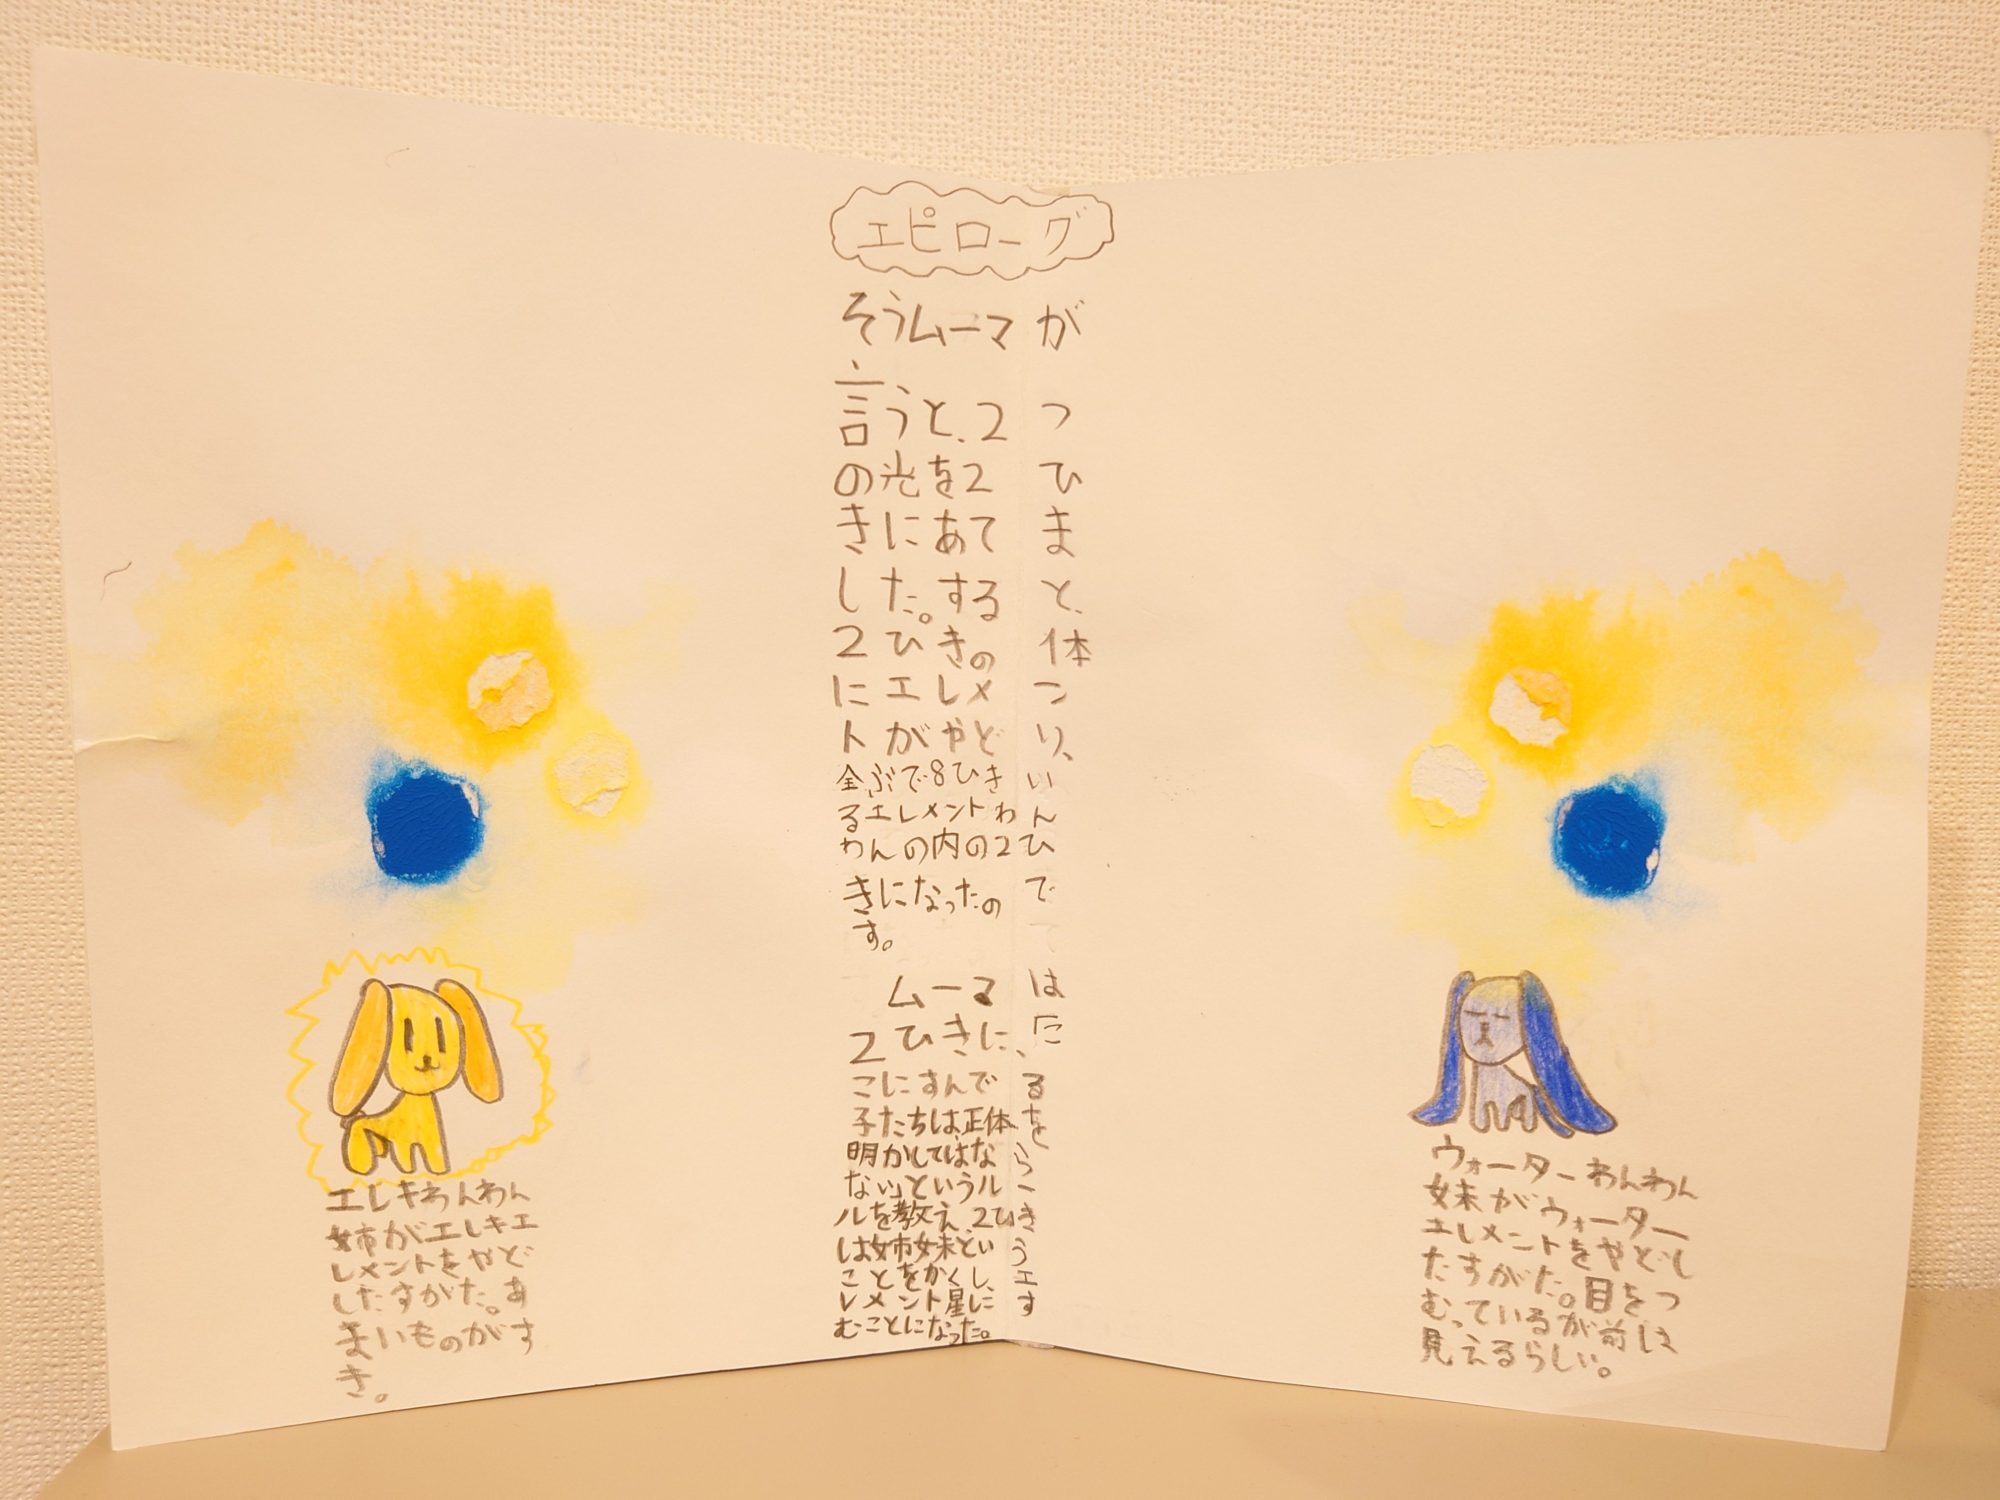 エピローグ
そうムーマが
言うと、2つ
の光を2ひ
きにあてま
した。すると、
2ひきの体
にエレメン
トがやどり、
全ぶで8ひきい
るエレメントわん
わんの内の2ひ
きになったので
す。
ムーマは
2ひきに、「こ
こにすんでいる
子たちは正体を
明かしてはなら
ない」というルー
ルを教え、2ひき
は姉妹という
ことをかくし、エ
レメント星にす
むことになった。
エレキわんわん
姉がエレキエ
レメントをやど
したすがた。あ
まいものがす
き。
ウォーターわんわん
妹がウォーター
エレメントをやどし
たすがた。目をつ
むっているが前は
見えるらしい。